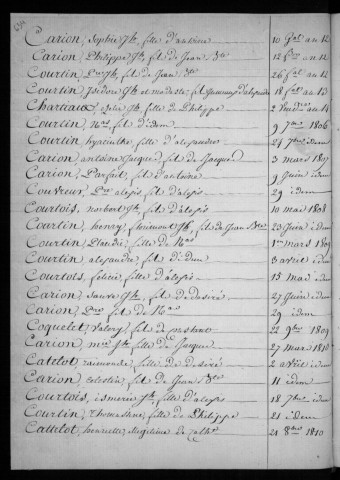 Carion, Sophie Jh, fille d'antoine 10 fal an 12
Carion, Philippe Jh, fil de Jean Bte 12 an 12
Courtin, Jh, fil de Jean Bte 26 fal an 12
Courtin, Isidore Jh et modeste, fil d'alexandre 18 fal an 13
Charteaux, Julie Jh, fille de Philippe 2 an 14
Courtin, fil d'idem 9 7bre 1806
Courtin, hyacinthe, fille d'alexandre 21 7bre idem
Carion, antoine Jacque, fil de Jacque 3 mars 1807
Carion, Parfait, fil d'antoine 9 Juin idem
Couvreur, alexis, fil d'alexis 29 idem
Courtois, norbert Jh, fil d'alexis 10 mai 1808
Courtin, henry Jh, fil de Jean Bte 23 Juin idem
Courtin, Claudie, fille de 1er mars 1809
Courtin, alexandre, fil d'idem 3 avril idem
Courtois, felicie, fil d'alexis 13 mai idem
Carion, Jh, fil de desiré 27 Juin idem
Carion, fil de 29 idem
Coquelet, Valery, fil de 22 9bre 1809
Carion, Jh, fille de Jacque 27 mars 1810
Catelot, raimonde, fille de desiré 2 avril idem
Carion, celestin, fil de Jean Bte 11 idem
Courtois, ismerie Jh, fille d'alexis 18 7bre idem
Courtin, fille de Philippe 21 idem
Cattelot, henriette, Angeline de 21 8bre 1810